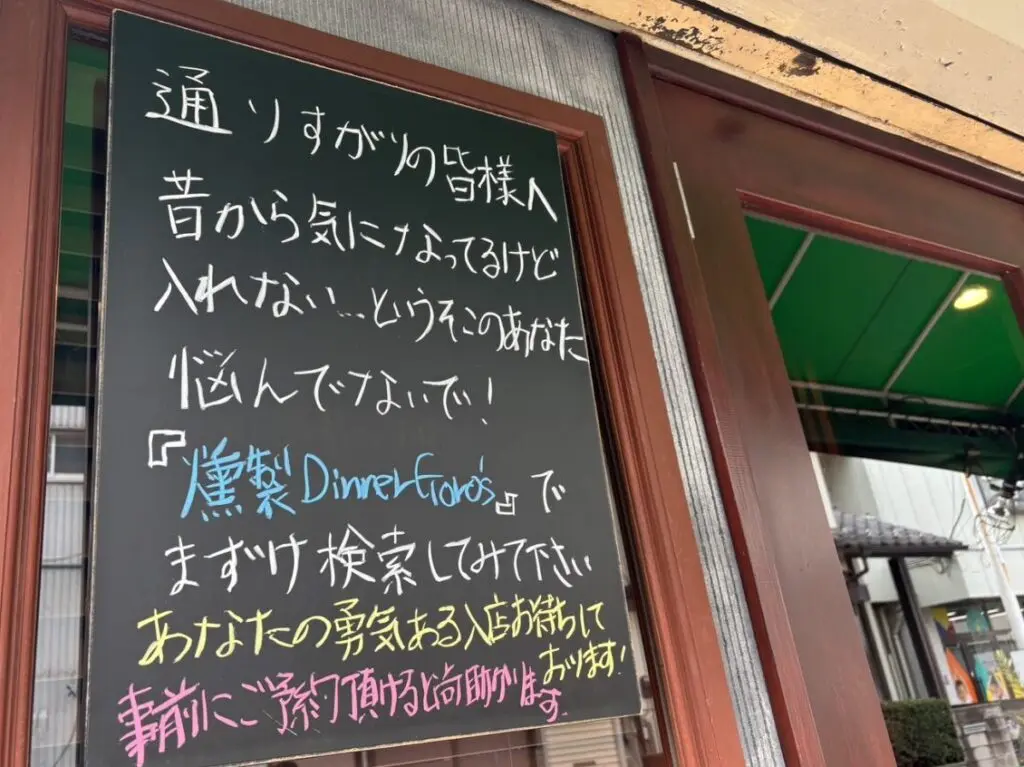 通りすがりの皆様へ
昔から気になってるけど
入れない…というそこのあなた
悩んでないで!
『燻製DinnerGoro's』で
まずけ検索してみて下さい
あなたの勇気ある入店お待ちして
おります!
事前にご予約頂けると尚助かります